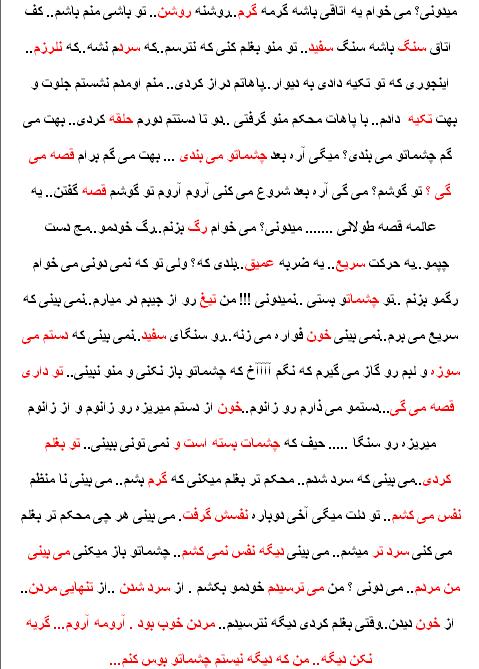 میدونی؟ می خوام یه اتاقی باشه گرمه گرم..روشنه روشن.. تو باشی منم باشم.. کف
اتاق سنگ باشه سنگ سفید.. تو منو بغلم کنی که نترسم..که سردم نشه..که نلرزم..
اینجوری که تو تکیه دادی به دیوار..پاهاتم دراز کردی.. منم اومدم نشستم جلوت و
بهت تکیه دادم.. با پاهات محکم منو گرفتی ..دو تا دستتم دورم حلقه کردی.. بهت می
گم چشماتو می بندی؟ میگی آره بعد چشماتو می بندی ... بهت می گم برام قصه می
گی ؟ تو گوشم؟ می گی آره بعد شروع می کنی آروم آروم تو گوشم قصه گفتن.. یه
عالمه قصه طولانی ....... میدونی؟ می خوام رگ بزنم..رگ خودمو..مچ دست
چپمو..یه حرکت سریع.. یه ضربه عمیق..بلدی که؟ ولی تو که نمی دونی می خوام
رگمو بزنم ..تو چشماتو بستی ..نمیدونی !!! من تیغ رو از جیبم در میارم..نمی بینی که
سریع می برم..نمی بینی خون فواره می زنه..رو سنگای سفید..نمی بینی که دستم می
سوزه و لبم رو گاز می گیرم که نگم آآآآخ که چشماتو باز نکنی و منو نبینی.. تو داری
قصه می گی...دستمو می ذارم رو زانوم..خون از دستم میریزه رو زانوم و از زانوم
میریزه رو سنگا ..... حیف که چشمات بسته است و نمی تونی ببینی.. تو بغلم
کردی..می بینی که سرد شدم.. محکم تر بغلم میکنی که گرم بشم.. می بینی نا منظم
نفس می کشم.. تو دلت میگی آخی دوباره نفسش گرفت. می بینی هر چی محکم تر بغلم
می کنی سرد تر میشم.. می بینی دیگه نفس نمی کشم.. چشماتو باز میکنی می بینی
من مردم.. می دونی ؟ من می ترسیدم خودمو بکشم . از سرد شدن ..از تنهایی مردن..
از خون دیدن..وقتی بغلم کردی دیگه نترسیدم.. مردن خوب بود . آرومه آروم... گریه
نکن دیگه.. من که دیگه نیستم چشماتو بوس کنم...